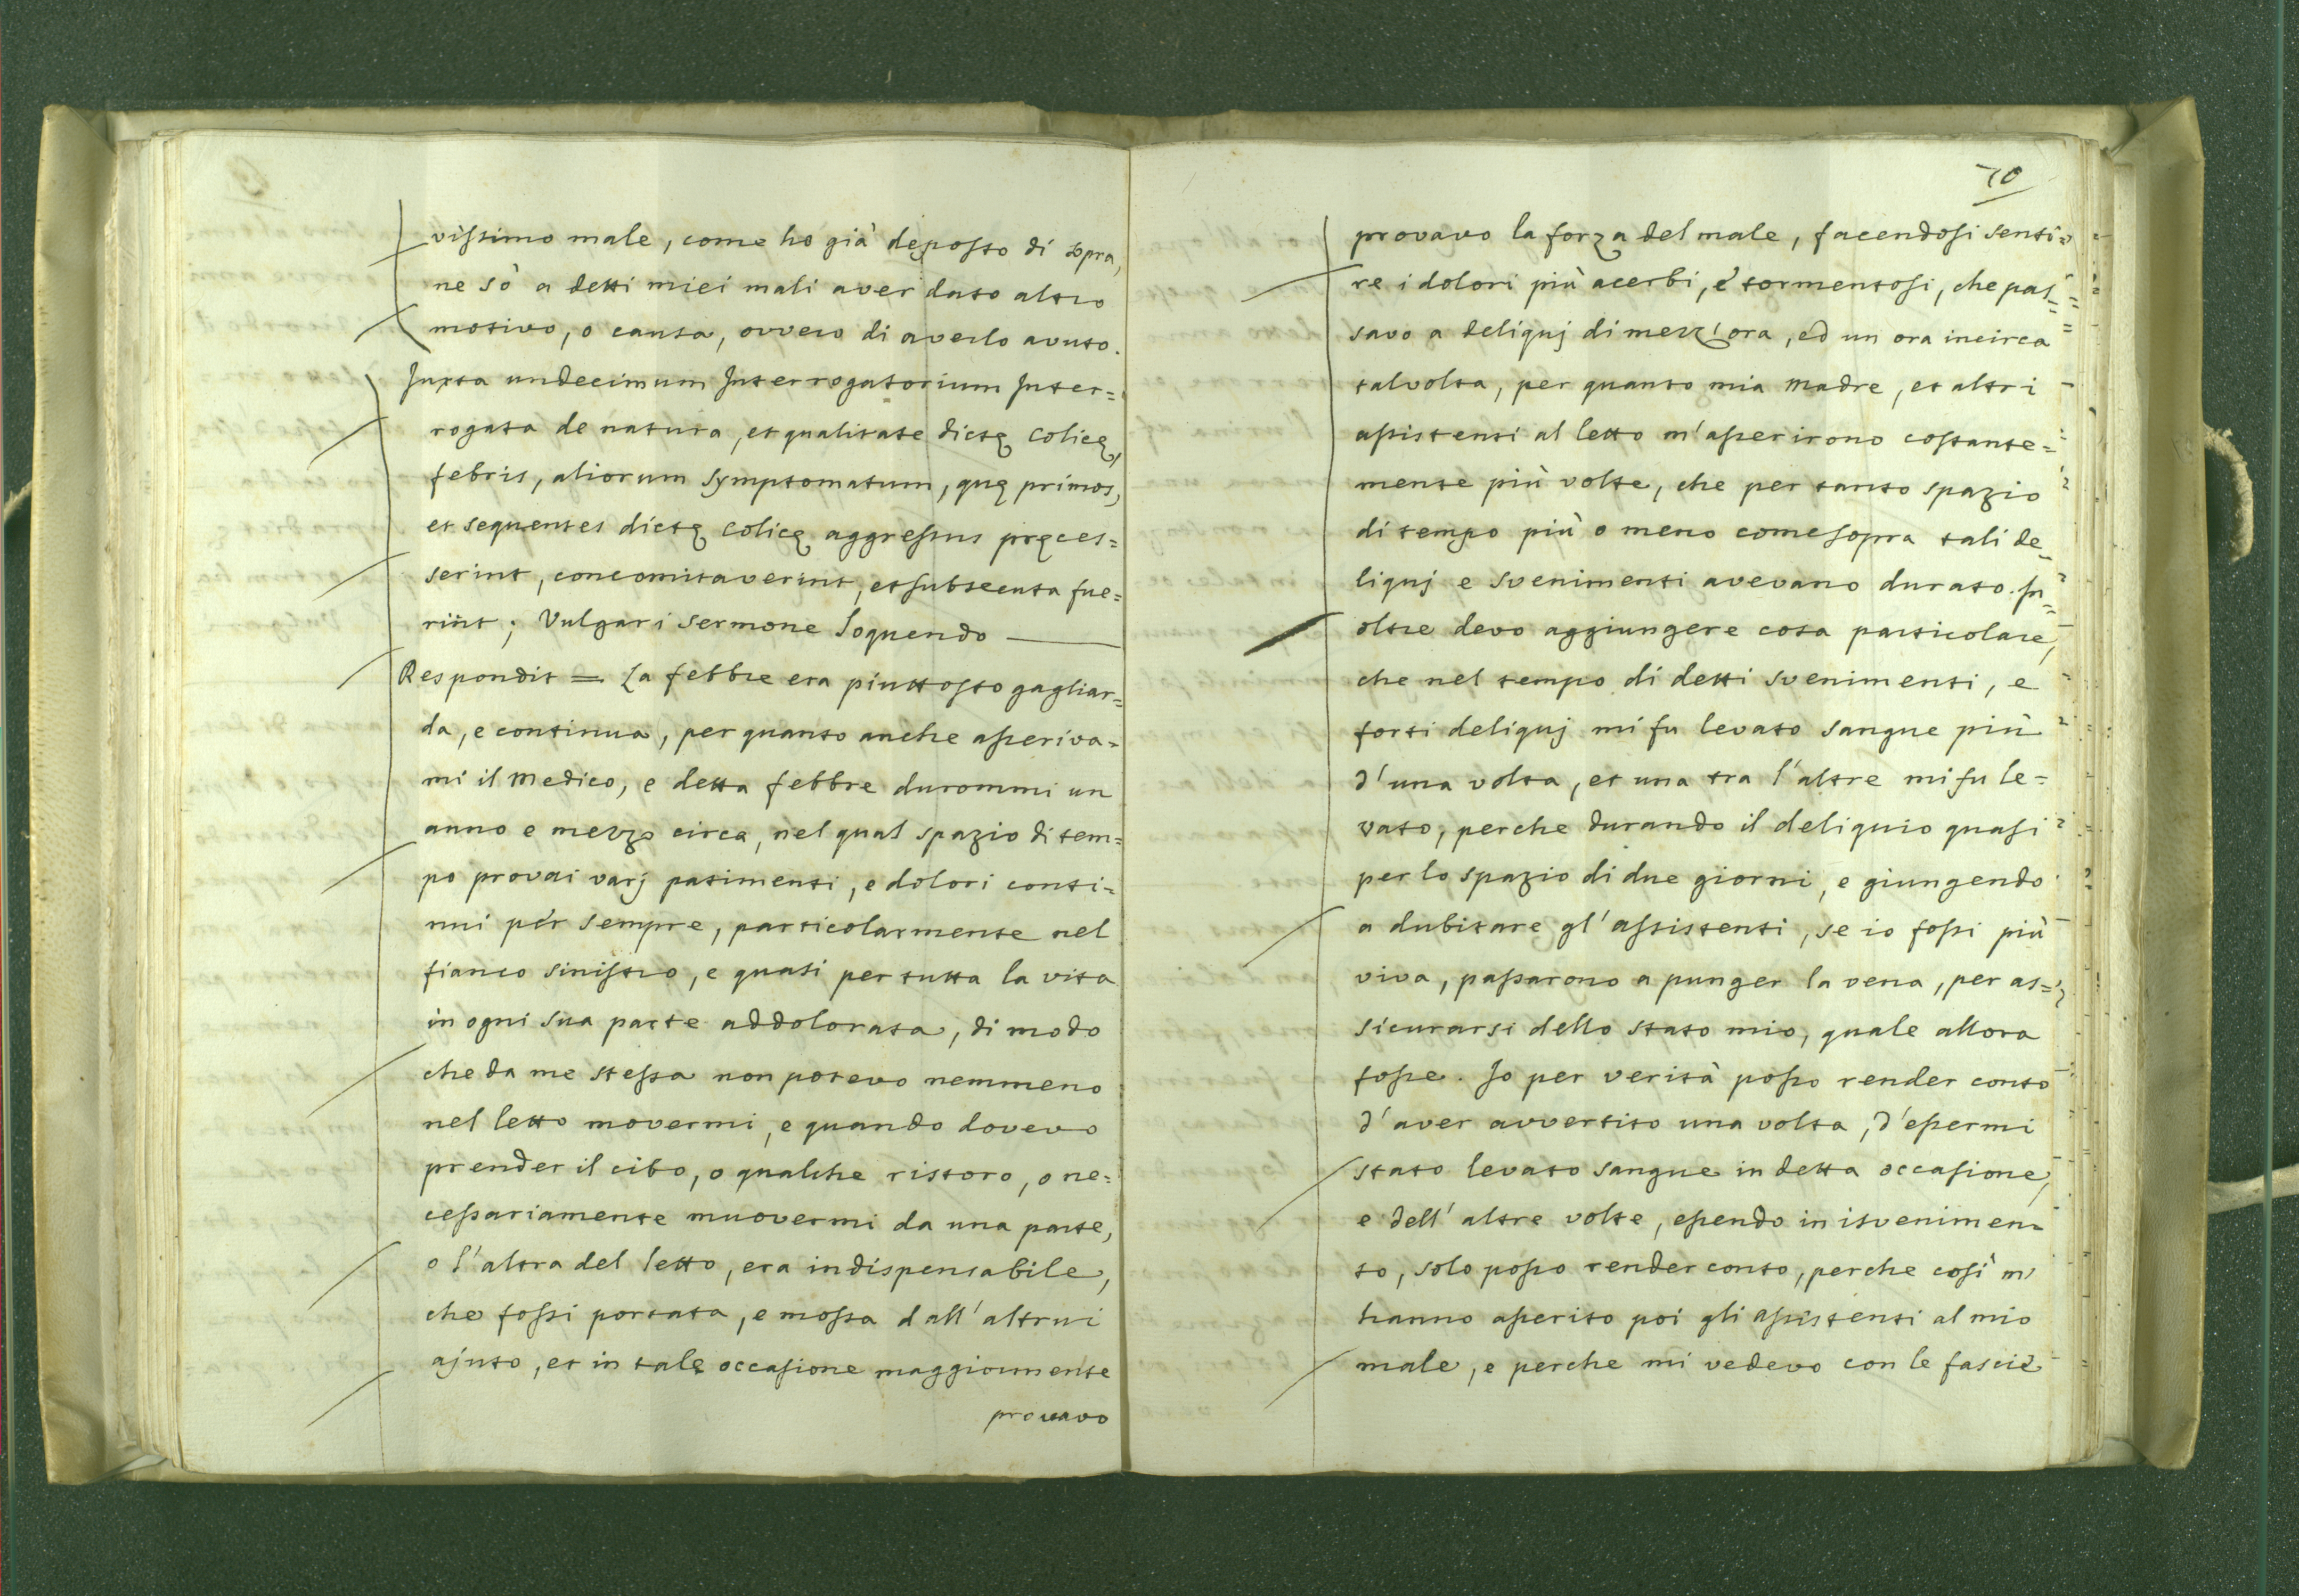 vissimo male, come ho già deposto di sopra,
ne sò a detti miei mali aver dato altro
motivo, o causa, ovvero di averlo avuto.
Juxta undecimum Interrogatorium Inter=
rogata de natura, et qualitate dictę Colicę,
febris, aliorum symptomatum, quę primos,
et sequentes dictę Colicę aggressus pręces=
serint, concomitaverint, et subsecuta fue=
rint; Vulgari Sermone loquendo
Respondit = La febbre era piuttosto gagliar=
da, e continua, per quanto anche asseriva=
mi il Medico, e detta febbre durommi un
anno e mezzo circa, nel qual spazio di tem=
po provai varj patimenti, e dolori conti=
nui per sempre, particolarmente nel
fianco sinistro, e quasi per tutta la vita
in ogni sua parte addolorata, di modo
che da me stessa non potevo nemmeno
nel letto movermi, e quando dovevo
prender il cibo, o qualche ristoro, o ne=
cessariamente muovermi da una parte,
o l'altra del letto, era indispensabile,
che fossi portata, e mossa dall'altrui
ajuto, et in tale occasione maggiormente
provavo
70
provavo la forza del male, facendosi senti=
re i dolori più acerbi, e tormentosi, che pas=
savo a deliquj di mezz'ora, ed un ora incirca
talvolta, per quanto mia Madre, et altri
assistenti al letto m'asserirono costante=
mente più volte, che per tanto spazio
di tempo più o meno come sopra tali de=
liquj e svenimenti avevano durato. In=
oltre devo aggiungere cosa particolare,
che nel tempo di detti svenimenti, e
forti deliquj mi fu levato sangue più
d'una volta, et una tra l'altre mi fu le=
vato, perche durando il deliquio quasi
per lo spazio di due giorni, e giungendo
a dubitare gl'assistenti, se io fossi più
viva, passarono a punger la vena, per as=
sicurarsi dello stato mio, quale allora
fosse. Io per verità posso render conto
d'aver avvertito una volta, d'essermi
stato levato sangue in detta occasione,
e dell'altre volte, essendo in isvenimen=
to, solo posso render conto, perche così m'
hanno asserito poi gli assistenti al mio
male, e perche mi vedevo con le fascie